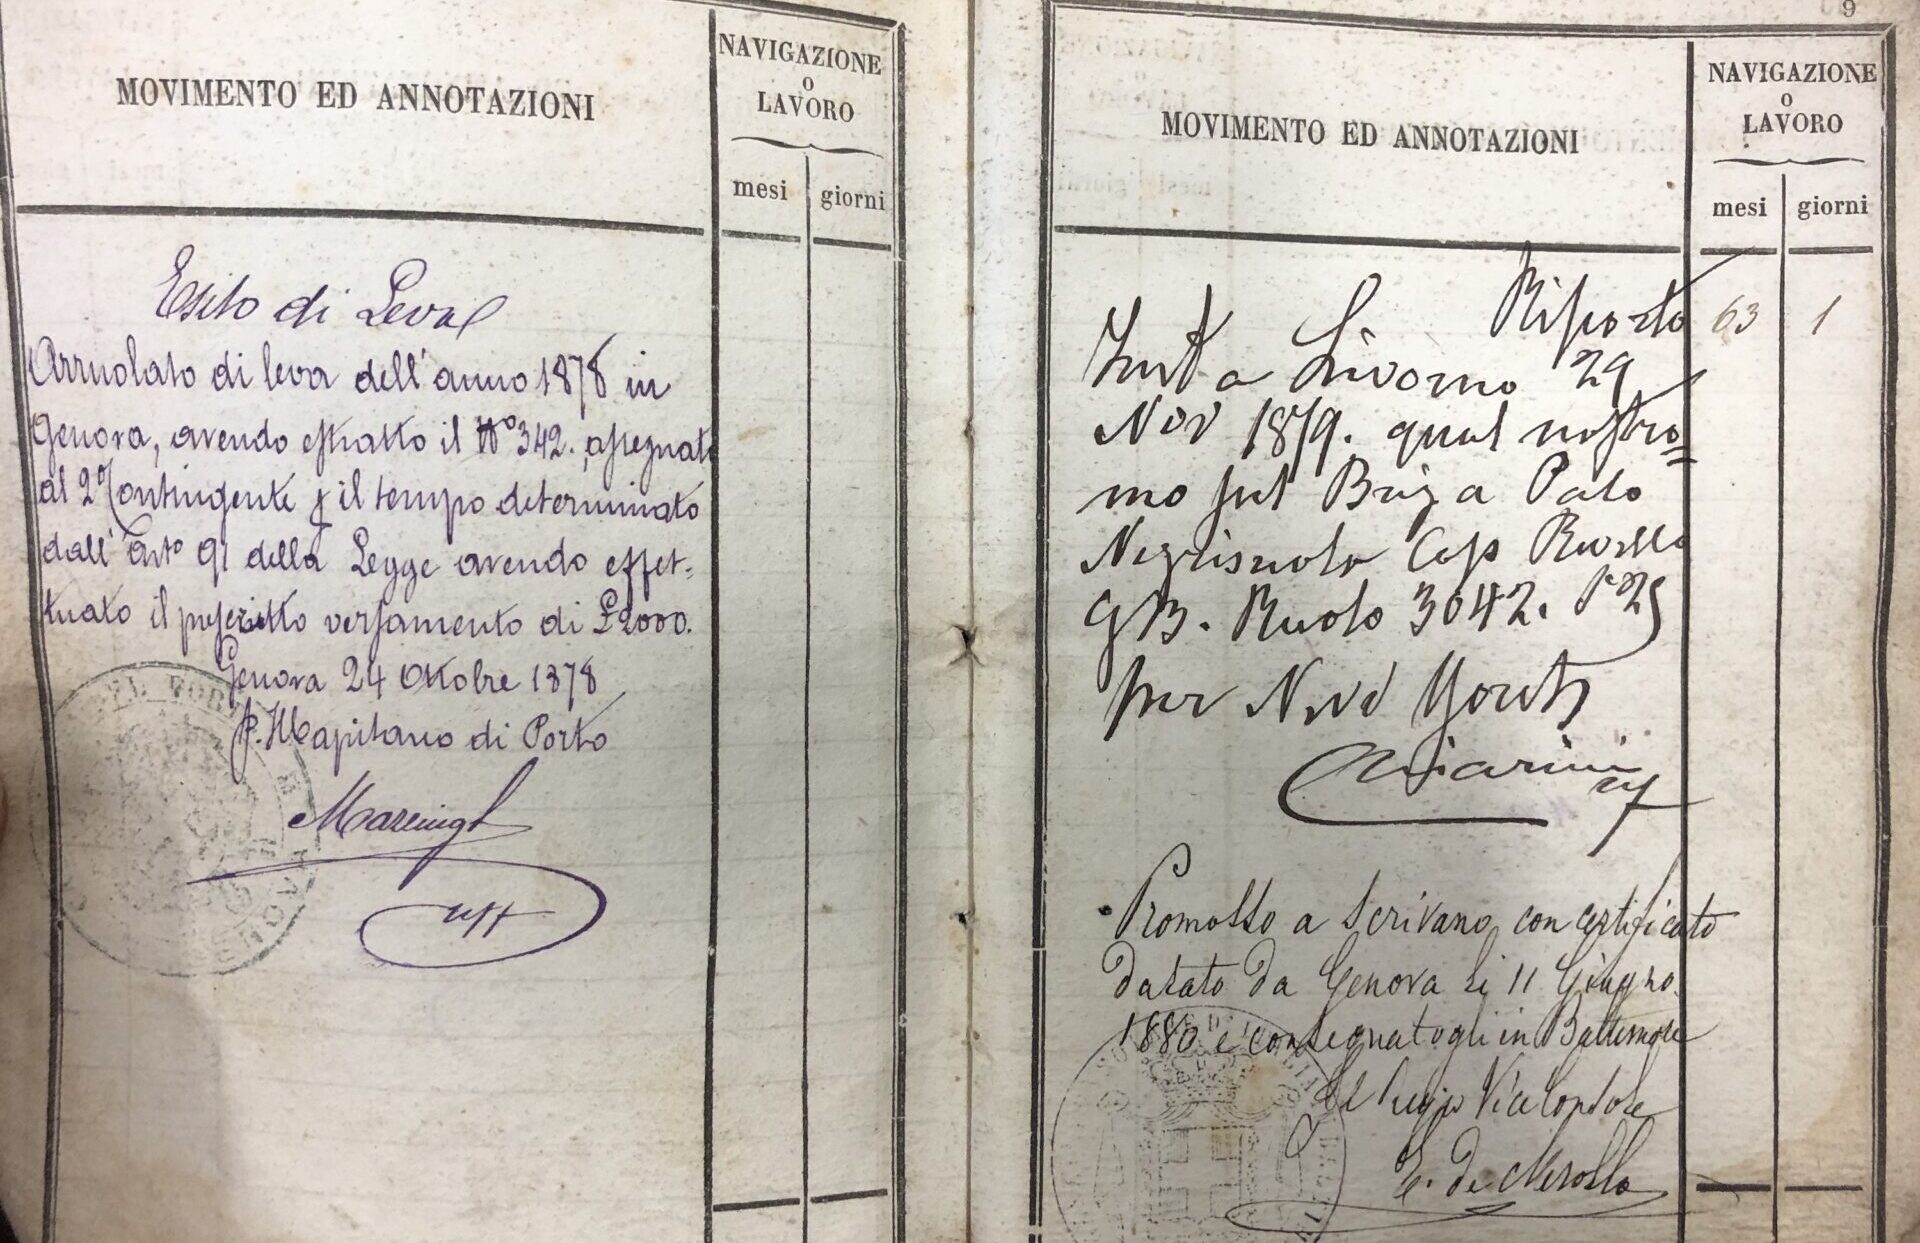 MOVIMENTO ED ANNOTAZIONI
NAVIGAZIONE
O
LAVORO
mesi giorni
Esito di Leva
Arruolato di leva dell'anno 1878 in
Genova, avendo estratto il N° 342. assegnato
al 2° Contingente p il tempo determinato
dall'Art° 91 della Legge avendo effet-
tuato il prescritto versamento di £2000.
Genova 24 Ottobre 1878
p. Il Capitano di Porto
9
MOVIMENTO ED ANNOTAZIONI
NAVIGAZIONE
O
LAVORO
mesi giorni
Riporto 63 1
a Livorno 29
Nov 1879. qual nostro=
mo sul Brig a Palo
Cap
GB. Ruolo 3042.
per New York
Chiarini
Promosso a Scrivano con certificato
datato da Genova li 11 Giugno
1880 e consegnatogli in Baltimore
Il Regio Vice Console